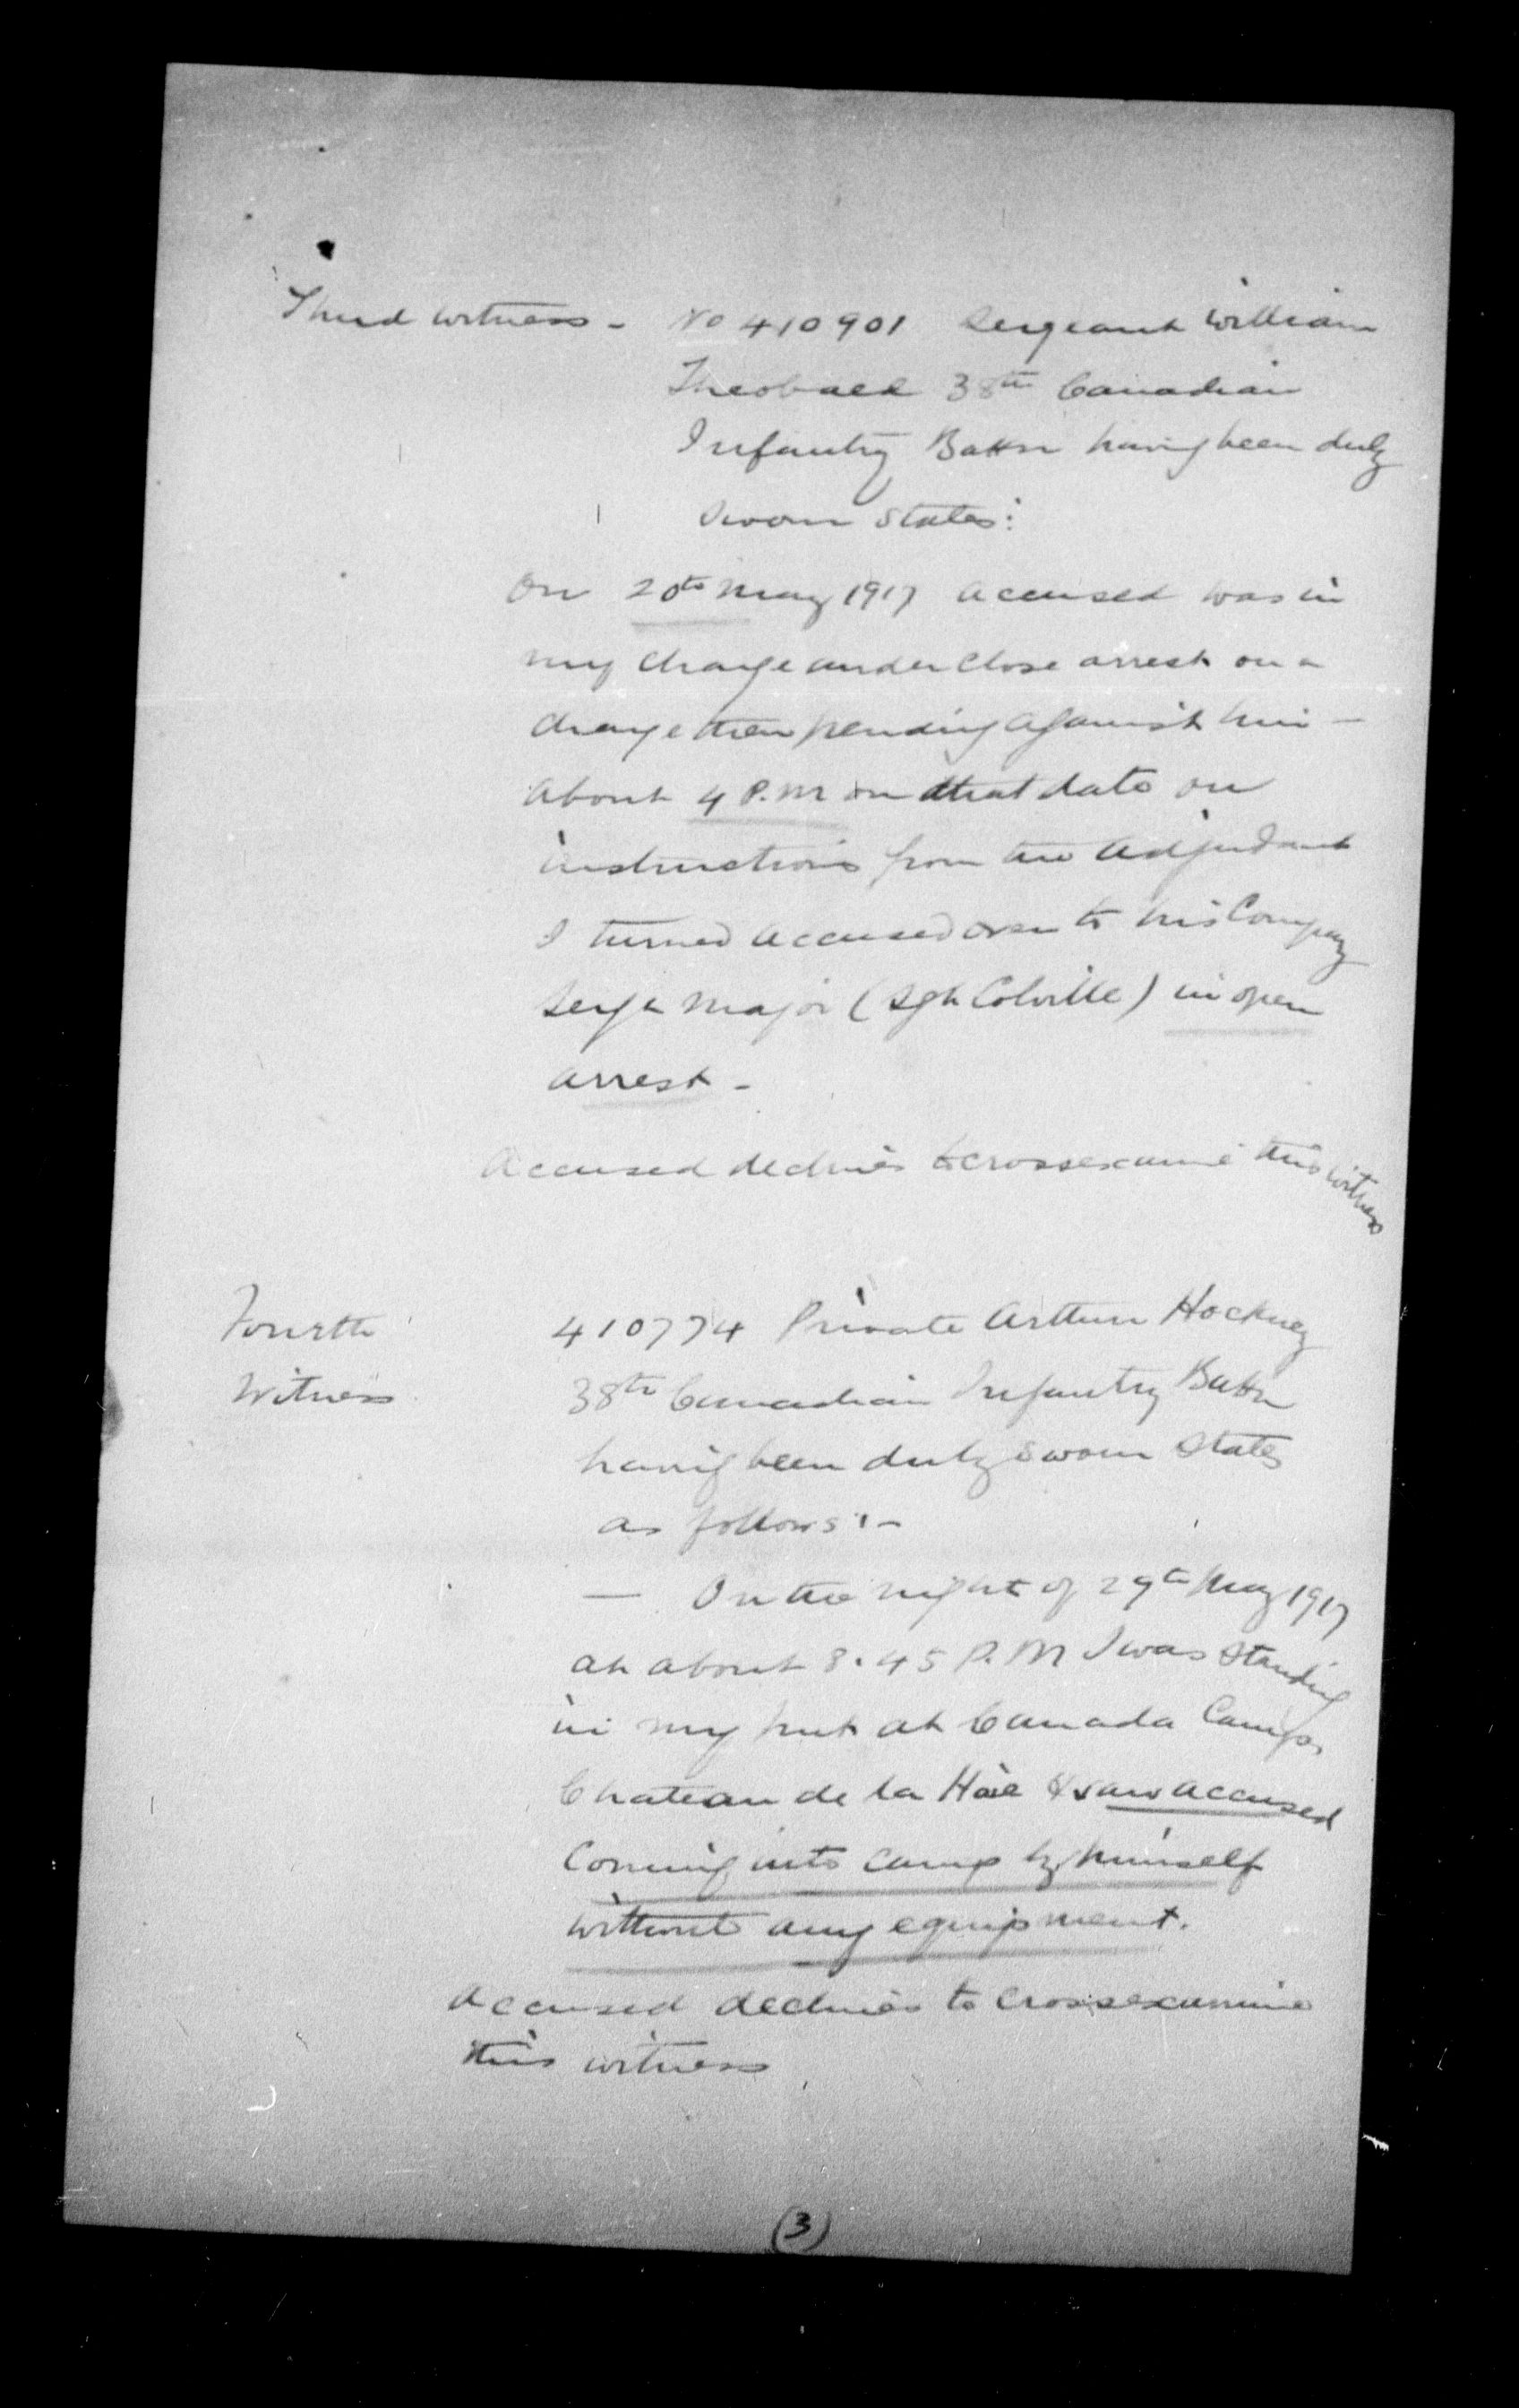 Third Witness - No 410901 Sergeant William
Theobald 38th Canadian
Infantry Battn having been duly
sworn states:
On 20th May 1917 accused was in
my charge under close arrest on a
charge then pending against him -
About 4 P.M on that date on
instructions from the Adjutant
I turned accused over to his Company
Sergt Major (Sgt Colville) in open
arrest -
Accused declines to cross examine this witness
Fourth 410774 Private Arthur Hockney
Witness 38th Canadian Infantry Battn
having been duly sworn states
as follows :-
- On the night of 29th May 1917
at about 8.45 P.M I was standing
in my hut at Canada Camp,
Chateau de la Haie & saw accused
coming into camp by himself
without any equipment.
Accused declines to cross examine
this witness
(3)